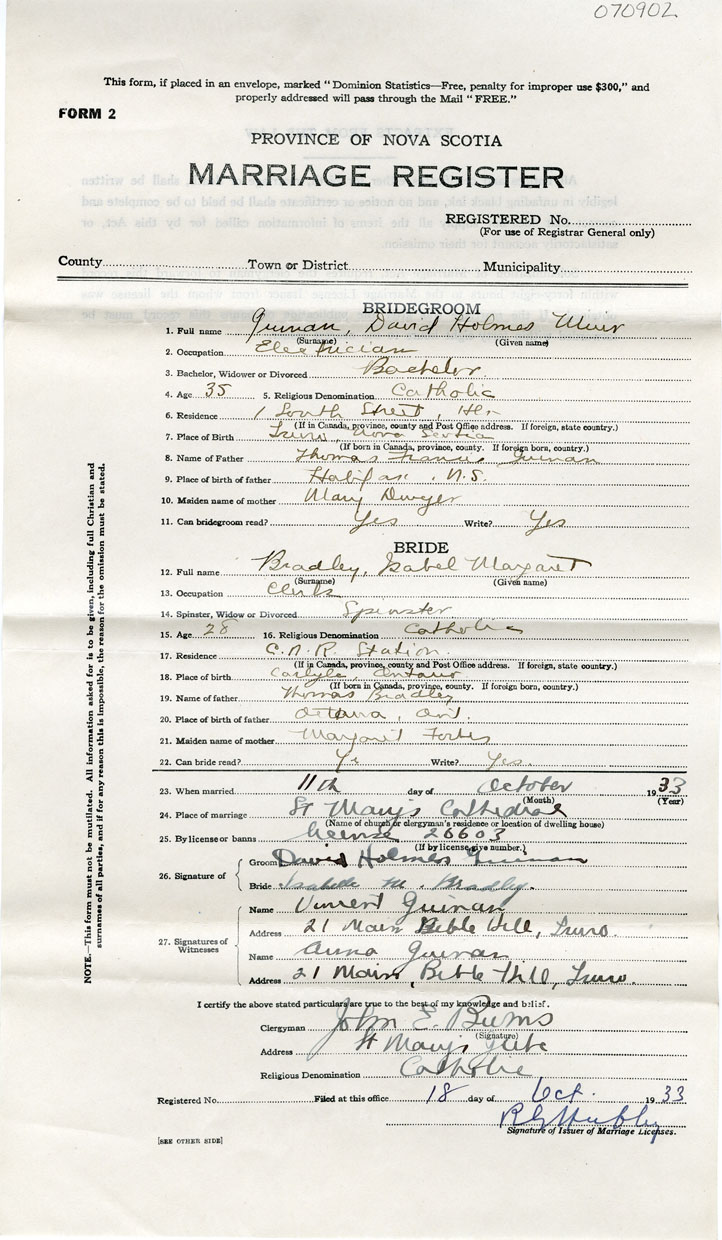 070902
This form, if placed in an envelope, marked "Dominion Statistics—Free, penalty for improper use $300," and
properly addressed will pass through the Mail "FREE."
FORM 2
PROVINCE OF NOVA SCOTIA
MARRIAGE REGISTER
REGISTERED No.
(For use of Registrar General only)
County Town or District Municipality
BRIDEGROOM
1. Full name Guinan, David Holmes Muir
(Surname) (Given name)
2. Occupation Electrician
3. Bachelor, Widower or Divorced Bachelor
4. Age 35 5. Religious Denomination Catholic
6. Residence 1 South Street, Hfx
(If in Canada, province, county and Post Office address. If foreign, state country.)
7. Place of Birth Truro, Nova Scotia
(If born in Canada, province, county. If foreign born, country.)
8. Name of Father Thomas Francis Guinan
9. Place of birth of father Halifax, N.S.
10. Maiden name of mother Mary Dwyer
11. Can bridegroom read? Yes Write? Yes
BRIDE
12. Full name Bradley, Isabel Margaret
(Surname) (Given name)
13. Occupation Clerk
14. Spinster, Widow or Divorced Spinster
15. Age 28 16. Religious Denomination Catholic
17. Residence C.N.R. Station.
(If in Canada, province, county and Post Office address. If foreign, state country.)
18. Place of birth Carlyle, Ontario
(If born in Canada, province, county. If foreign born, country.)
19. Name of father Thomas Bradley
20. Place of birth of father Ottawa, Ont.
21. Maiden name of mother Margaret Forbes
22. Can bride read? Yes Write? Yes.
23. When married 11th day of October 1933
(Month) (Year)
24. Place of marriage St Mary's Cathedral
(Name of church or clergyman's residence or location of dwelling house)
25. By license or banns license 26603
(If by license, give number.)
26. Signature of
Groom David Holmes Guinan
Bride Isabelle M. Bradley.
27. Signatures of Witnesses
Name Vincent Guinan
Address 21 Main Bible Hill, Truro.
Name Anna Guinan
Address 21 Main, Bible Hill, Truro.
I certify the above stated particulars are true to the best of my knowledge and belief.
Clergyman John E. Burns
(Signature)
Address St Mary's Glebe
Religious Denomination Catholic
Registered No. Filed at this office 18 day of Oct. 1933
Signature of Issuer of Marriage Licenses.
[SEE OTHER SIDE]
NOTE.—This form must not be mutilated. All information asked for is to be given, including full Christian and
surnames of all parties, and if for any reason this is impossible, the reason for the omission must be stated.